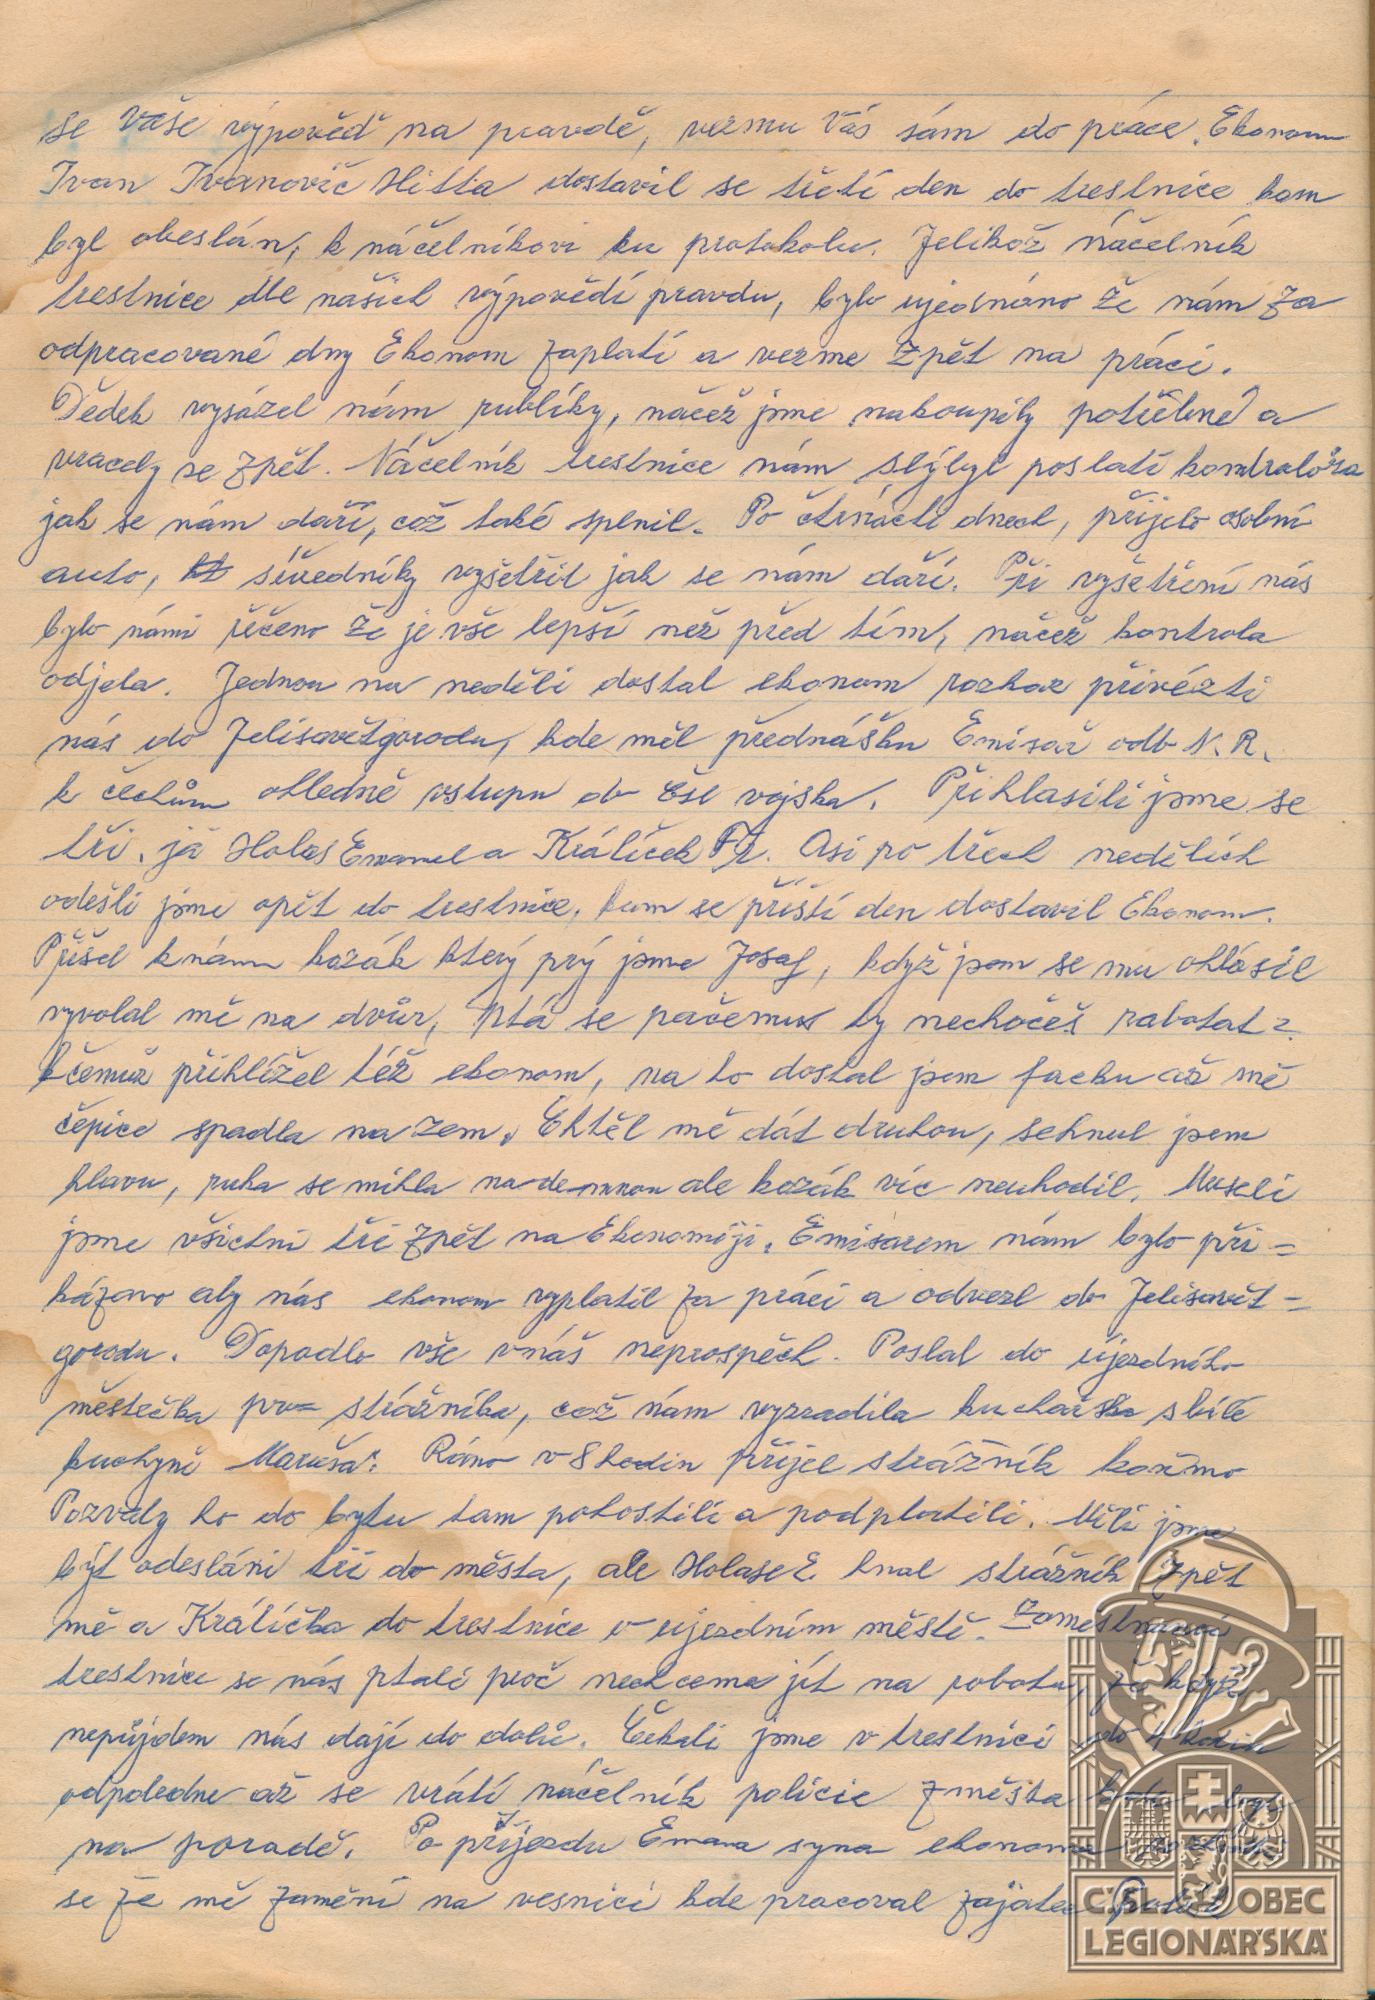 se Vaše výpověď na pravdě, vezmu Vás sám do práce. Ekonom
Ivan Ivanovič Hitta dostavil se třetí den do trestnice kam
byl obeslán, k náčelníkovi ku protokolu. Jelikož náčelník
trestnice dle našich výpovědí pravdu, bylo ujednáno že nám za
odpracované dny Ekonom zaplatí a vezme zpět na práci.
Dědek vysázel nám rublíky, načež jsme nakoupily potřebné a
vracely se zpět. Náčelník trestnice nám slýbyl poslati kontralóra
jak se nám daří, což také splnil. Po čtrnácti dnech, přijelo osobní
auto, sívedníky vyšetřit jak se nám daří. Při vyšetření nás
bylo námi řečeno že je vše lepší než před tím, načež kontrola
odjela. Jednou na neděli dostal ekonom rozkaz přivézti
nás do Jelisavětgorodu, kde měl přednášku Emisař odb N. R.
k čechům ohledně vstupu do Čsl vojska. Přihlasili jsme se
tři. já Holas Emanuel a Králíček Fr. Asi po třech nedělích
odešli jsme opět do trestnice, kam se příští den dostavil Ekonom.
Přišel knám kozák který prý jsme Josef, když jsem se mu ohlásil
vyvolal mě na dvůr, ptá se pačemu ty nechočeš rabotat?
kčemuž přihlížel též ekonom, na to dostal jsem facku až mě
čepice spadla na zem. Chtěl mě dát druhou, sehnul jsem
hlavu, ruka se mihla nademnou ale kozák víc neuhodil. Museli
jsme všichni tři zpět na Ekonomiji. Emisarem nám bylo při=
kázano aby nás ekonom vyplatil za práci a odvezl do Jelisavět=
gorodu. Dopadlo vše vnáš neprospěch. Poslal do újezdního
městečka pro strážníka, což nám vyzradila kuchařka sbílé
kuchyně Maruša". Ráno v 8 hodin přijel strážník koňmo
Pozvaly ho do bytu tam pohostili a podplatili. Měli jsme
být odesláni tři do města, ale Holase E. hnal strážník zpět
mě a Králíčka do trestnice v ujezdním městě. Zaměstnanci
trestnice se nás ptali proč nechceme jít na robotu, že když
nepůjdem nás dají do dolů. Čekali jsme v trestnici do 4 hodin
odpoledne až se vrátí náčelník policie změsta byl
na poradě. Po příjezdu Emana syna ekonoma
se že mě zamění na vesnici kde pracoval zajatec
ČSL. OBEC
LEGIONÁŘSKÁ